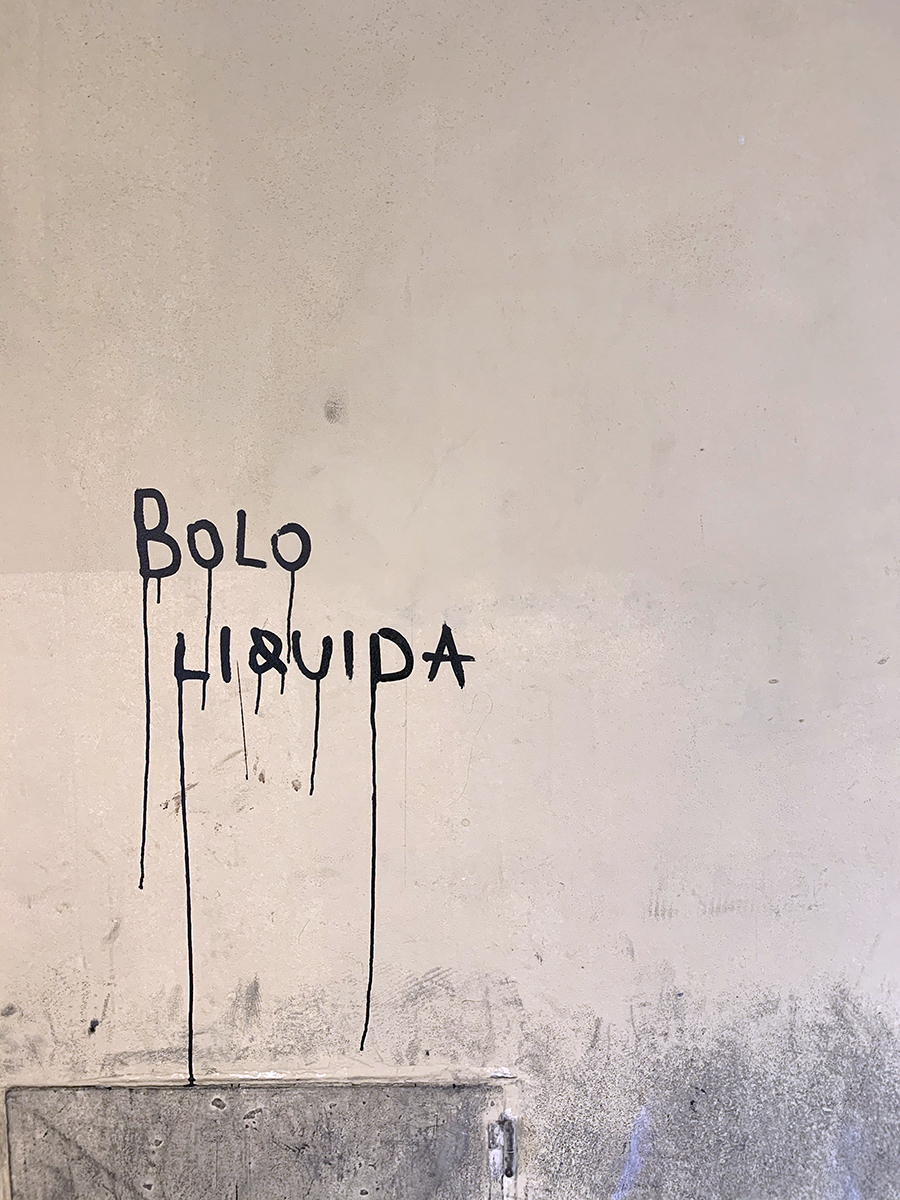 BOLO
LIQUIDA